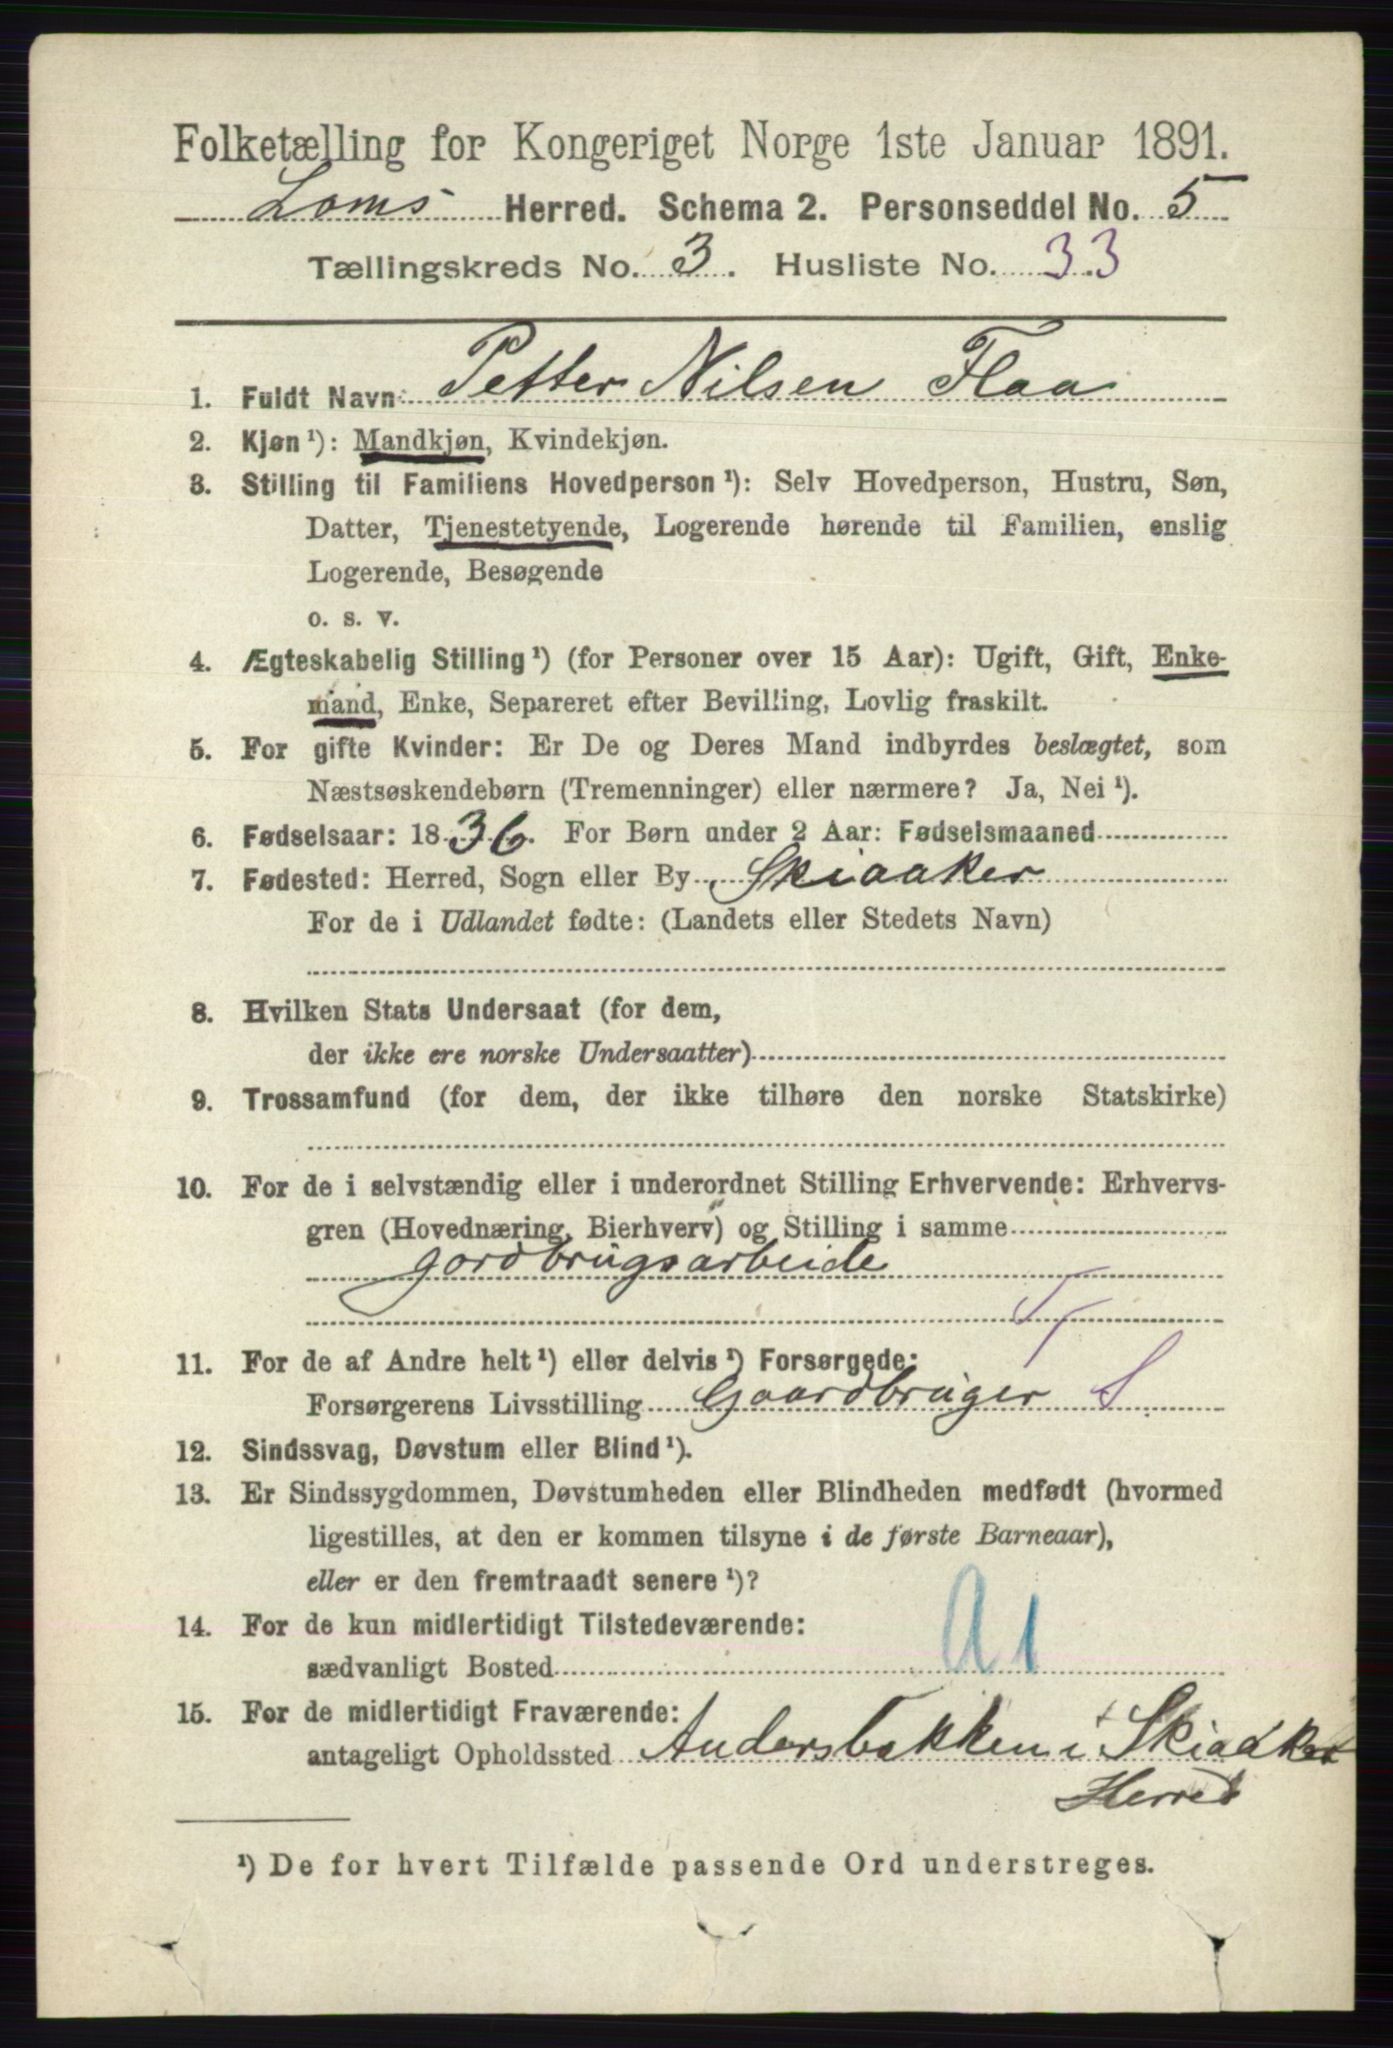 Folketælling for Kongeriget Norge 1ste Januar 1891.
Loms Herred. Schema 2. Personseddel No. 5
Tællingskreds No. 3. Husliste No. 33
1. Fuldt Navn: Petter Nilsen Flaa
2. Kjøn ¹): Mandkjøn, Kvindekjøn.
3. Stilling til Familiens Hovedperson ¹): Selv Hovedperson, Hustru, Søn,
Datter, Tjenestetyende, Logerende hørende til Familien, enslig
Logerende, Besøgende
o. s. v.
4. Ægteskabelig Stilling ¹) (for Personer over 15 Aar): Ugift, Gift, Enke-
mand, Enke, Separeret efter Bevilling, Lovlig fraskilt.
5. For gifte Kvinder: Er De og Deres Mand indbyrdes beslægtet, som
Næstsøskendebørn (Tremenninger) eller nærmere? Ja, Nei ¹).
6. Fødselsaar: 1836. For Børn under 2 Aar: Fødselsmaaned
7. Fødested: Herred, Sogn eller By Skiaaker
For de i Udlandet fødte: (Landets eller Stedets Navn)
8. Hvilken Stats Undersaat (for dem,
der ikke ere norske Undersaatter)
9. Trossamfund (for dem, der ikke tilhøre den norske Statskirke)
10. For de i selvstændig eller i underordnet Stilling Erhvervende: Erhvervs-
gren (Hovednæring, Bierhverv) og Stilling i samme
gordbrugsarbeide
T
11. For de af Andre helt ¹) eller delvis ¹) Forsørgede:
Forsørgerens Livsstilling Gaardbruger S
12. Sindssvag, Døvstum eller Blind ¹).
13. Er Sindssygdommen, Døvstumheden eller Blindheden medfødt (hvormed
ligestilles, at den er kommen tilsyne i de første Barneaar),
eller er den fremtraadt senere ¹)?
14. For de kun midlertidigt Tilstedeværende:
sædvanligt Bosted a1
15. For de midlertidigt Fraværende:
antageligt Opholdssted Andersbakken i Skiaaker
Herred
¹) De for hvert Tilfælde passende Ord understreges.